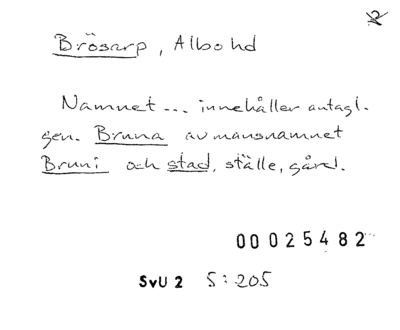 2
Brösarp, Albo hd
Namnet ... innehåller antagl.
gen. Bruna av mansnamnet
Bruni och stad, ställe, gård.
00025482
SvU 2 5:205